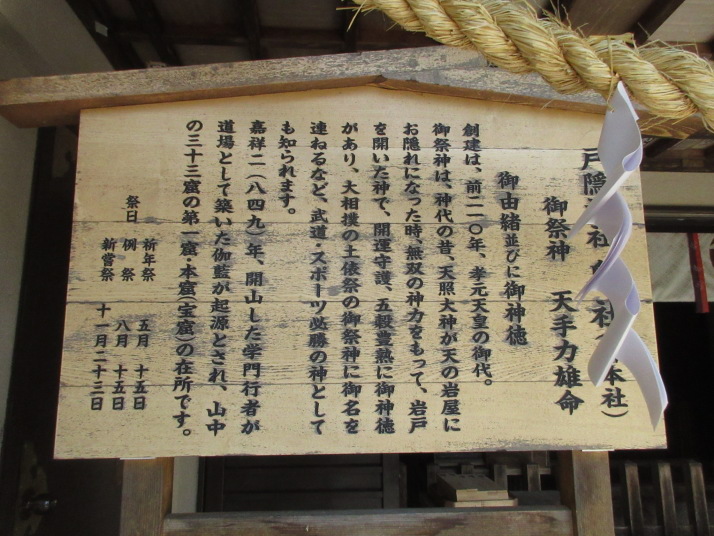 戸隠 社 社 本社)
御祭神 天手力雄命
御由緒並びに御神徳
創建は、前二一〇年、孝元天皇の御代。
御祭神は、神代の昔、天照大神が天の岩屋に
お隠れになった時、無双の神力をもって、岩戸
を開いた神で、開運守護、五穀豊熟に御神徳
があり、大相撲の土俵祭の御祭神に御名を
連ねるなど、武道・スポーツ必勝の神として
も知られます。
嘉祥二(八四九)年、開山した学門行者が
道場として築いた伽藍が起源とされ、山中
の三十三窟の第一窟・本窟(宝窟)の在所です。
祭日 祈年祭 五月 十五日
例祭 八月 十五日
新嘗祭 十一月二十三日